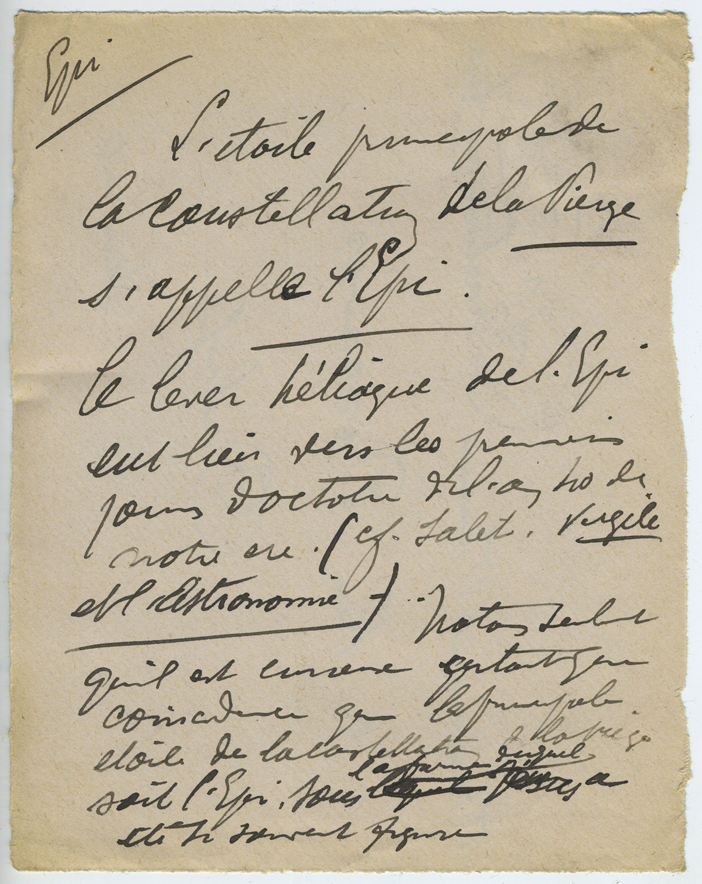 Epi
L'étoile principale de
la constellation de la Vierge
s'appelle l'Epi.
Le lever héliaque de l'Epi
eut lieu vers les premiers
jours d'octobre de l'an 40 de
notre ère. (cf. Salet. Virgile
et l'Astronomie) Notons seulement
qu'il est curieux
coincidence que la principale
étoile de la constellation de la Vierge
soit l'Epi, sous la forme duquel Jésus a
été si souvent figuré